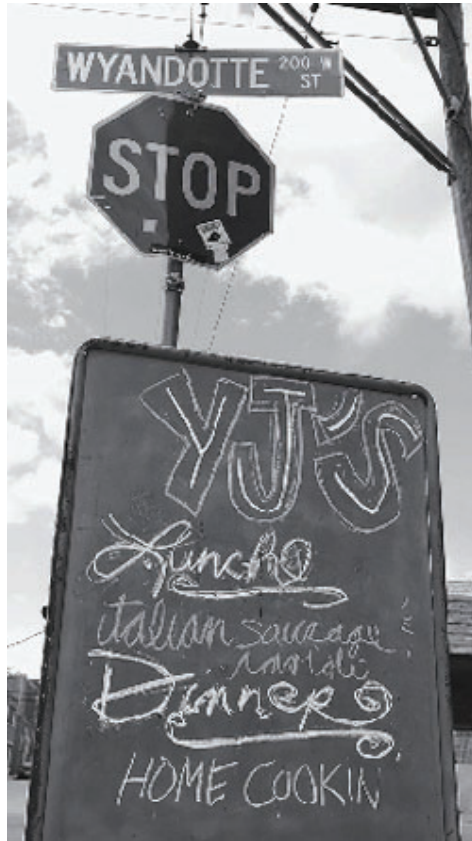 WYANDOTTE 200 W ST
STOP
YJ'S
Lunch
italian sausage &
ravioli
Dinner
HOME COOKIN